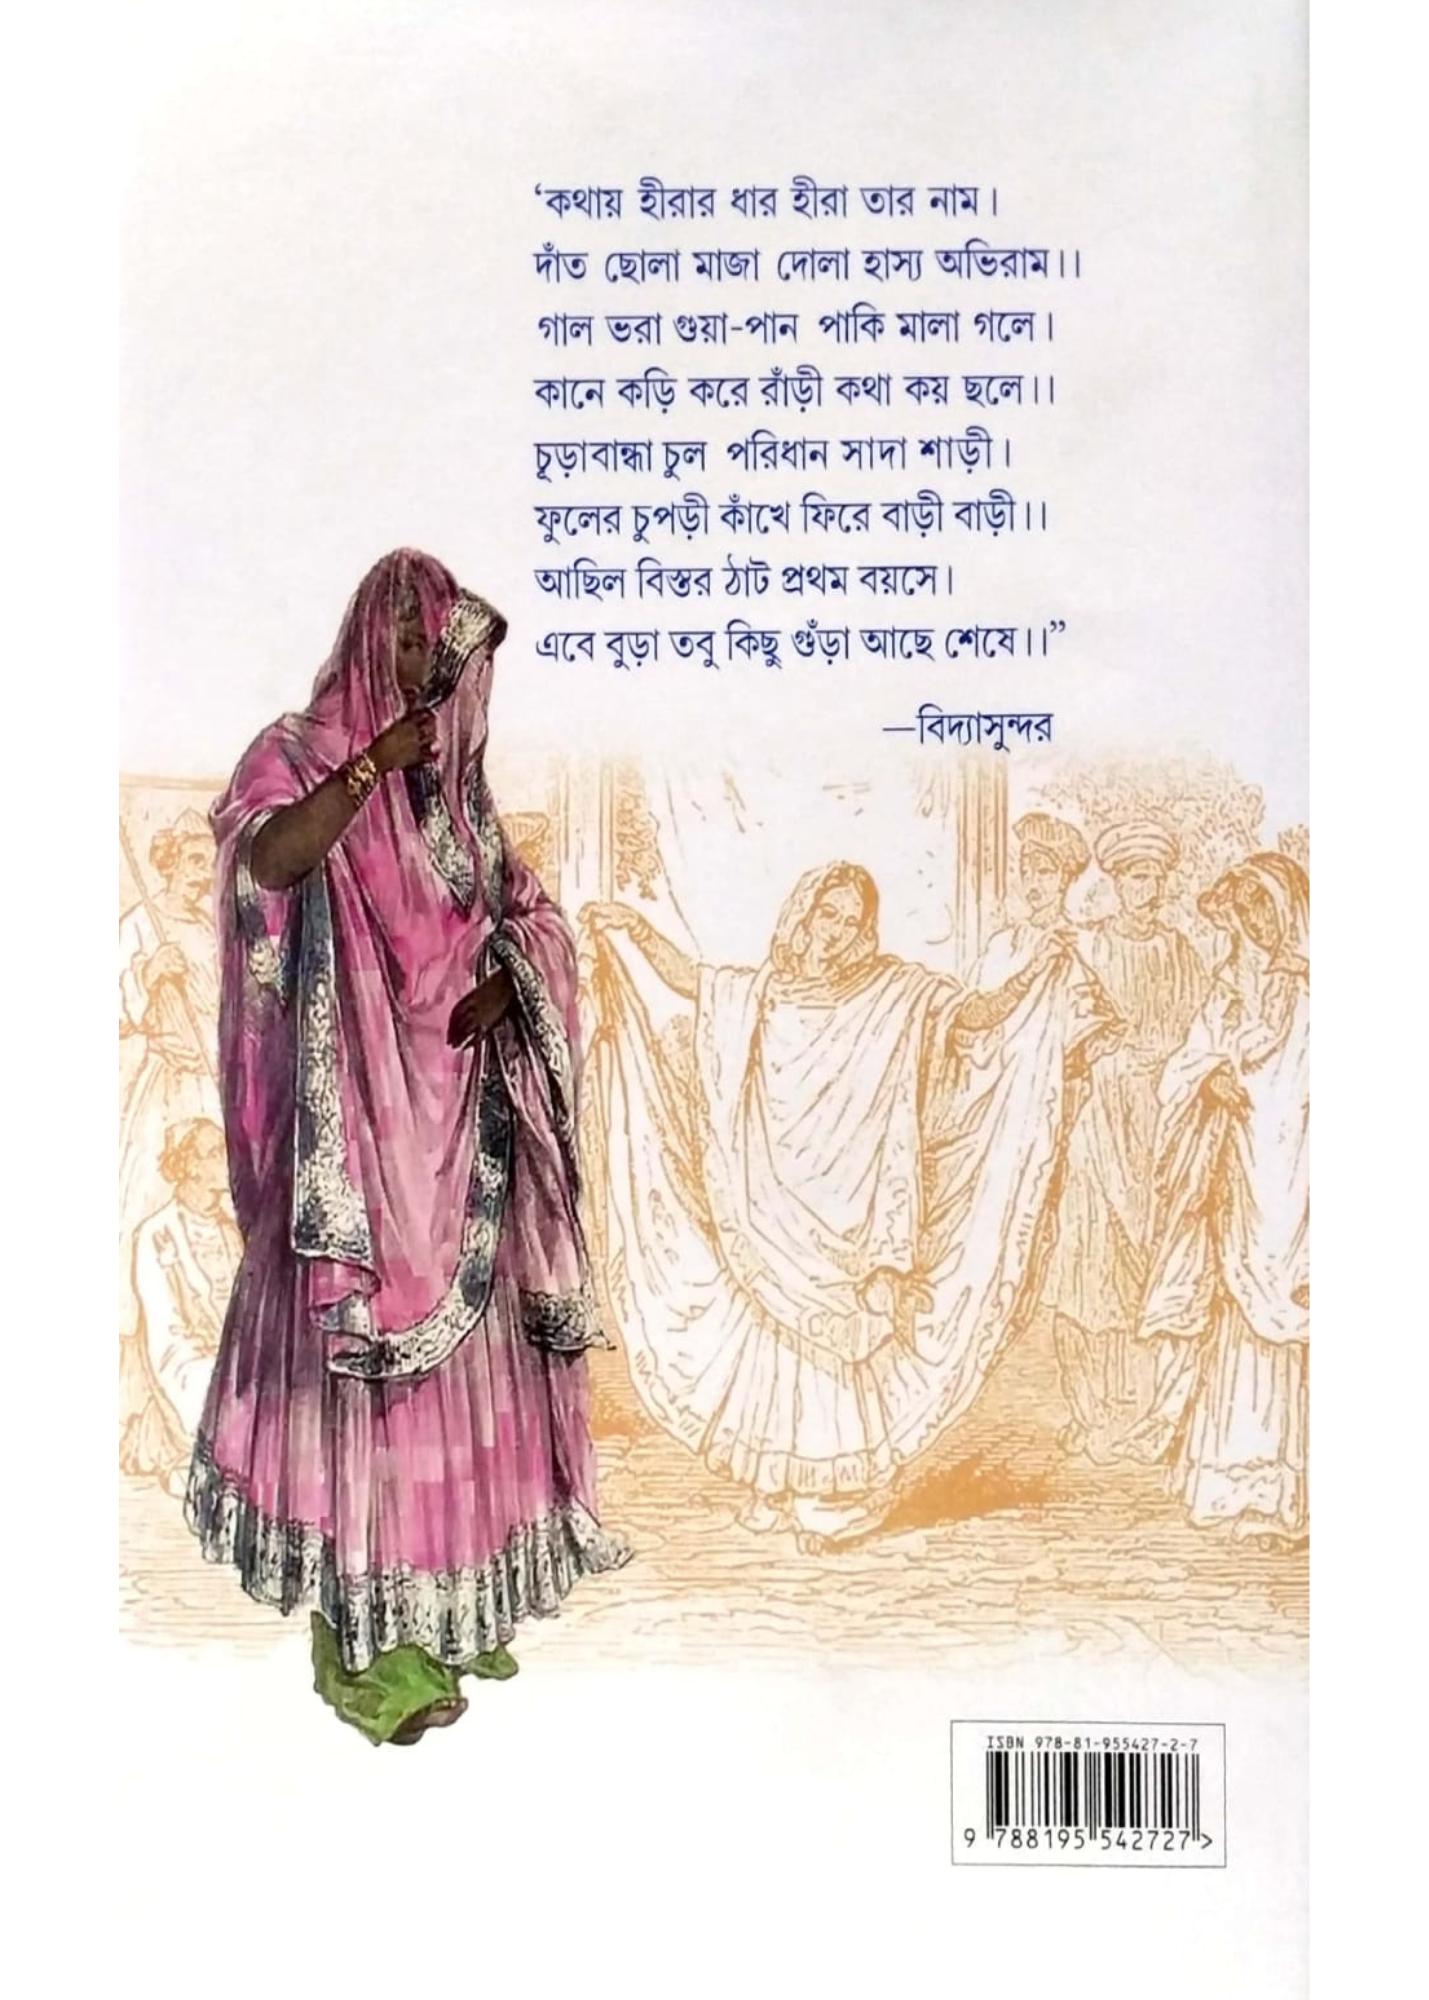 ‘কথায় হীরার ধার হীরা তার নাম।
দাঁত ছোলা মাজা দোলা হাস্য অভিরাম।।
গাল ভরা গুয়া-পান পাকি মালা গলে।
কানে কড়ি করে রাঁড়ী কথা কয় ছলে।।
চূড়াবান্ধা চুল পরিধান সাদা শাড়ী।
ফুলের চুপড়ী কাঁখে ফিরে বাড়ী বাড়ী।।
আছিল বিস্তর ঠাট প্রথম বয়সে।
এবে বুড়া তবু কিছু গুঁড়া আছে শেষে।।”
—বিদ্যাসুন্দর
ISBN 978-81-955427-2-7
9 788195 542727>